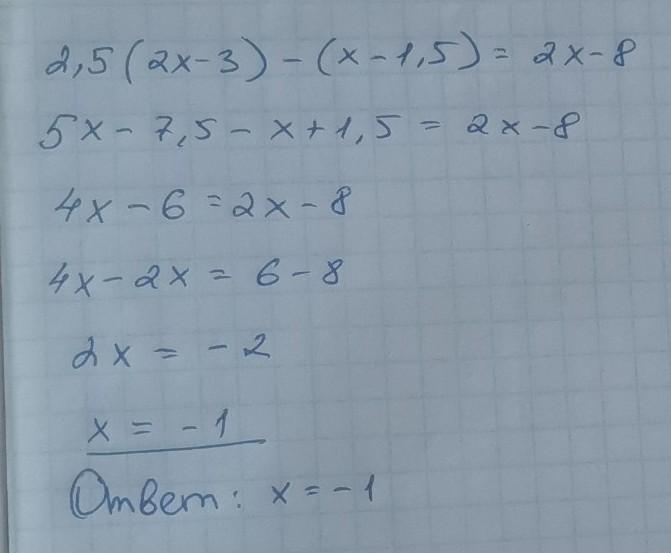 2,5(2x-3)-(x-1,5)= 2x-8
5x-7,5-x+1,5 = 2x-8
4x-6=2x-8
4x-2x = 6-8
2x = -2
x = -1
Ответ: x=-1